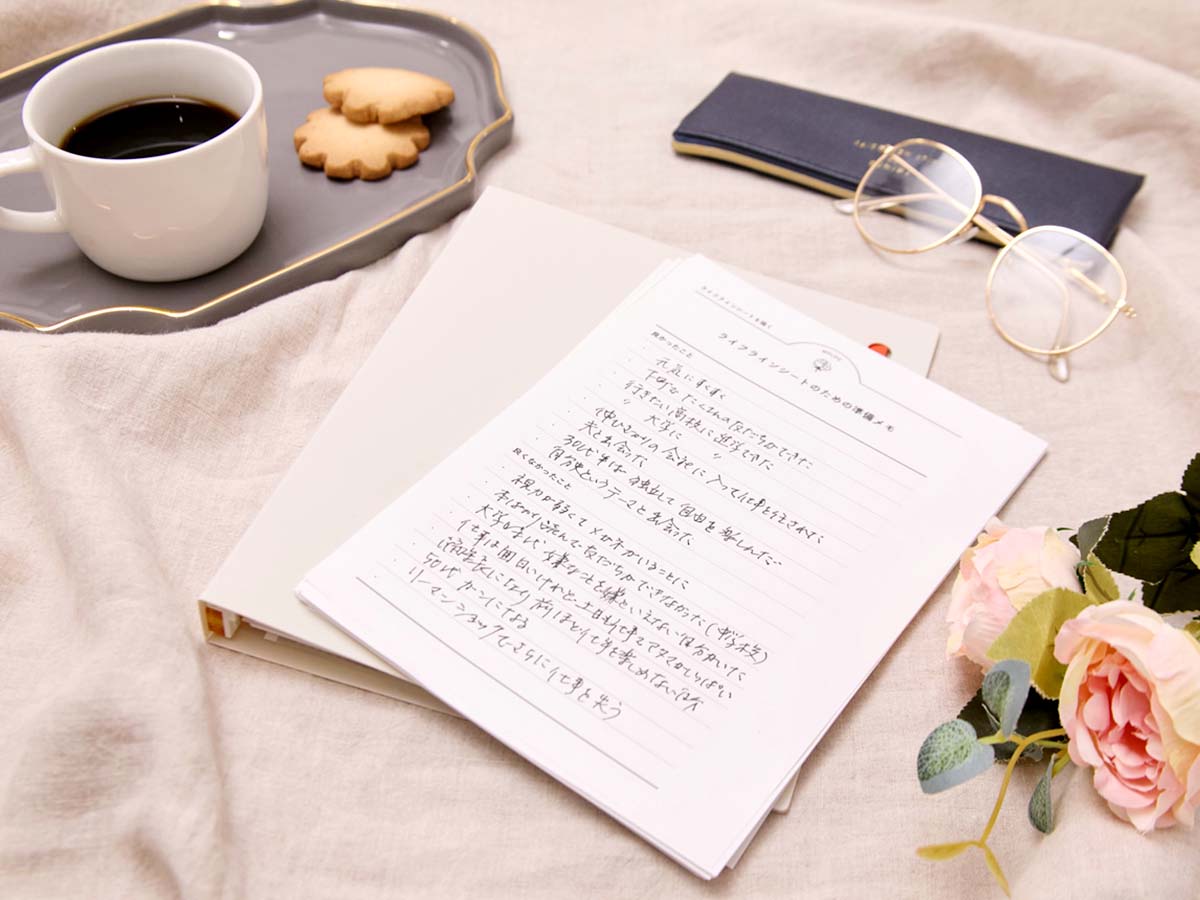 ライフラインシートを描く
ライフラインシートのための準備メモ
良かったこと
元気にすくすく
下町でたくさんの友だちができた
行きたい高校に進学できた
〃 大学に 〃
仲いさかりの会社に入って仕事を任された
夫と出会った
30代半ばは独立して自由を楽しんだ
自分史というテーマと出会った
良くなかったこと
視力が弱くてメガネがいることに
本ばかり読んで友だちができなかった(中学校)
大学時代、嫌なことを嫌といえない自分がいた
仕事は面白いけれど土日も仕事でアタマがいっぱい
経営者になり前ほど仕事を楽しめない自分
50代 ガンになる
リーマンショックでさらに仕事を失う